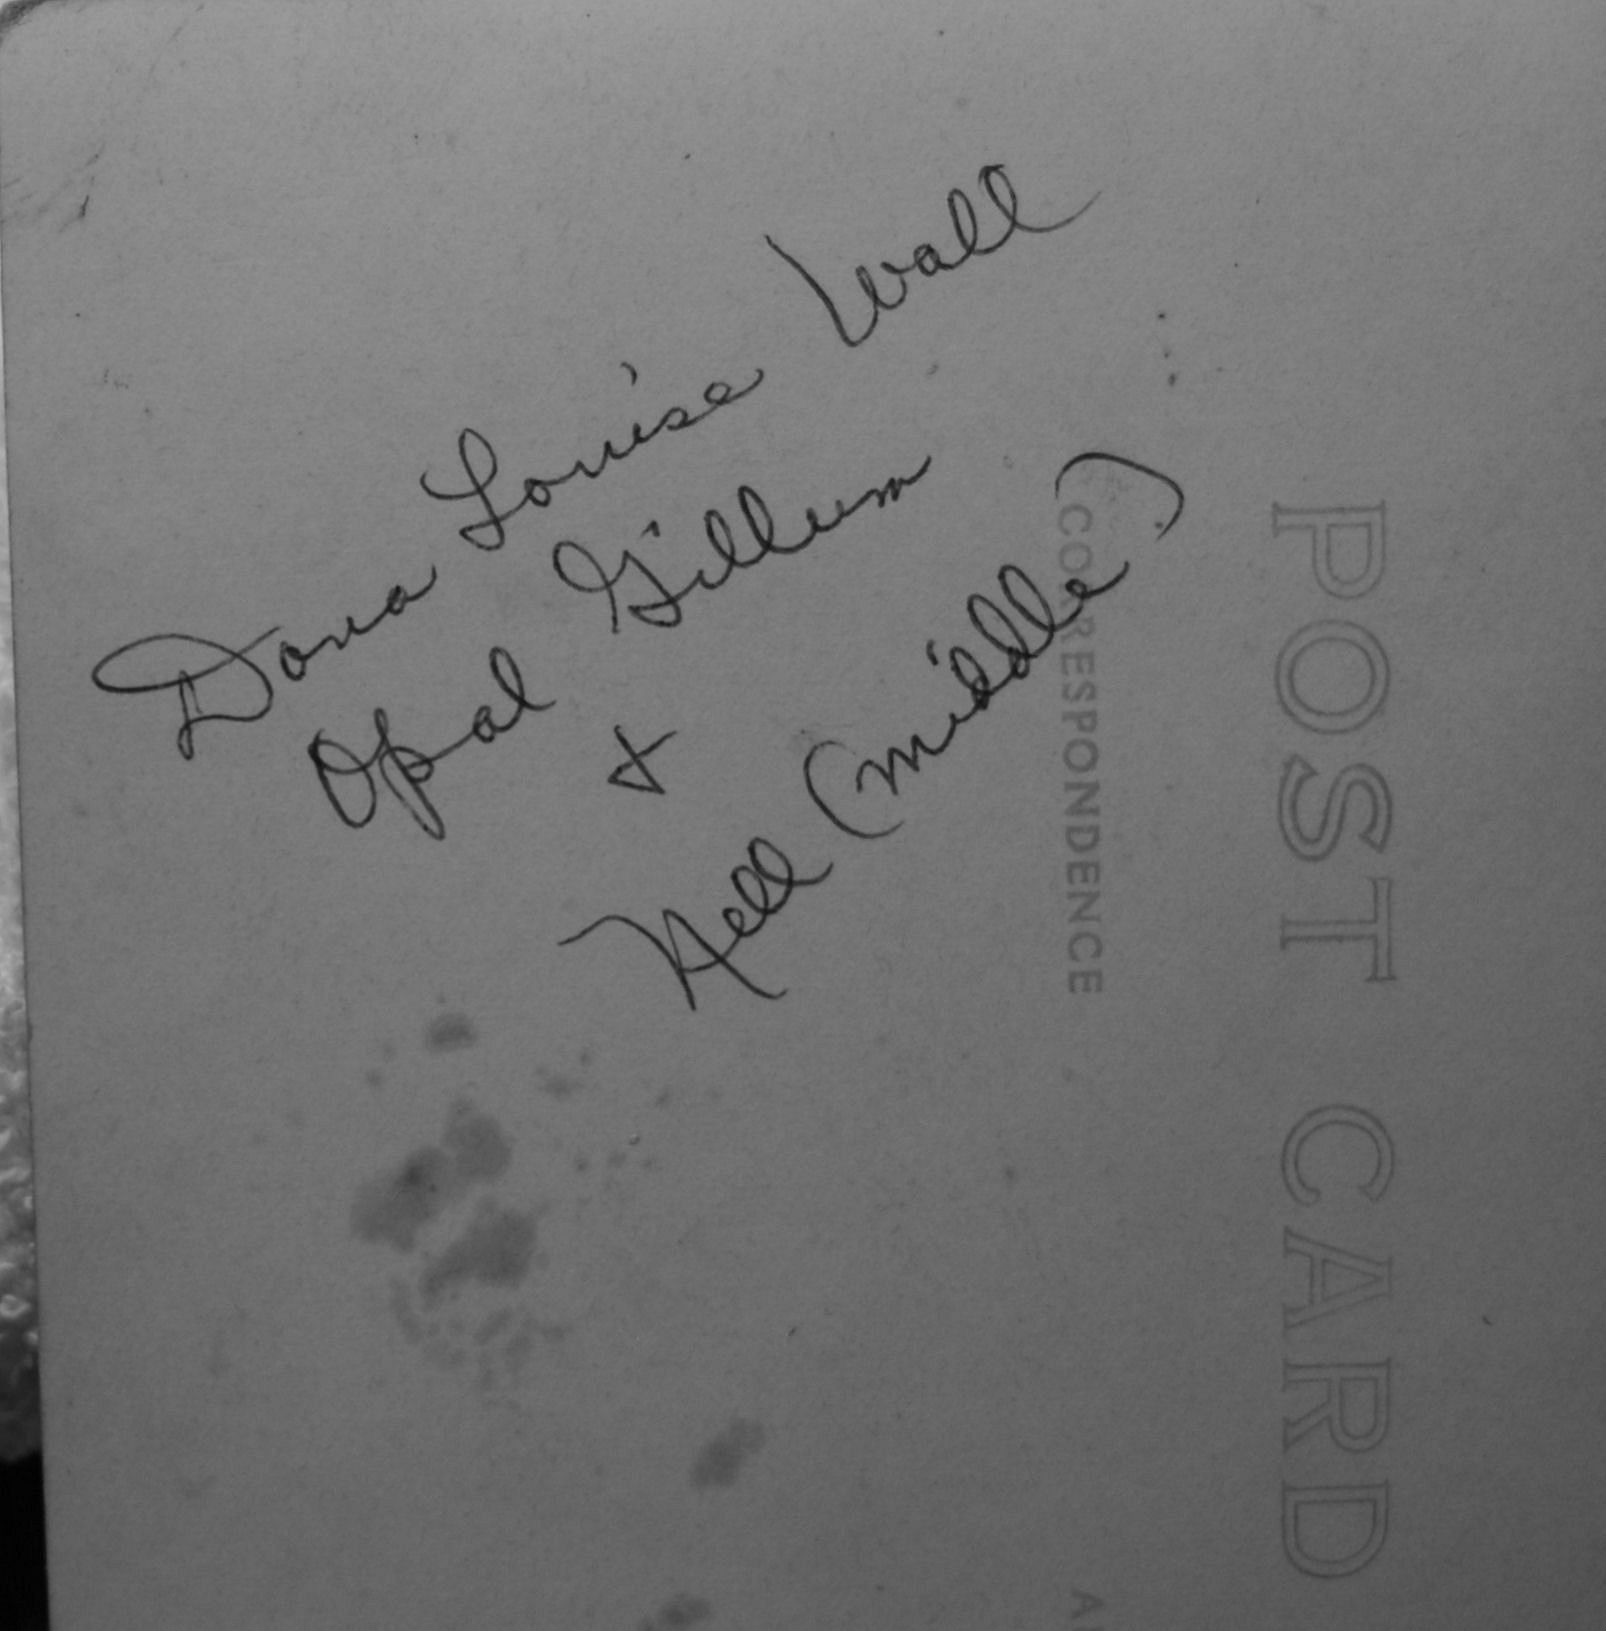 Dona Louise Wall
Opal Gillum
&
Nell (middle)
POST CARD
CORRESPONDENCE